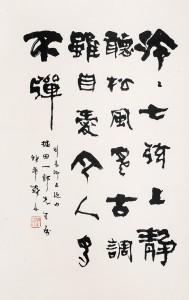 泠〻七弦上靜
聽松風寒古調
雖自愛今人多
不彈
田一郎先生